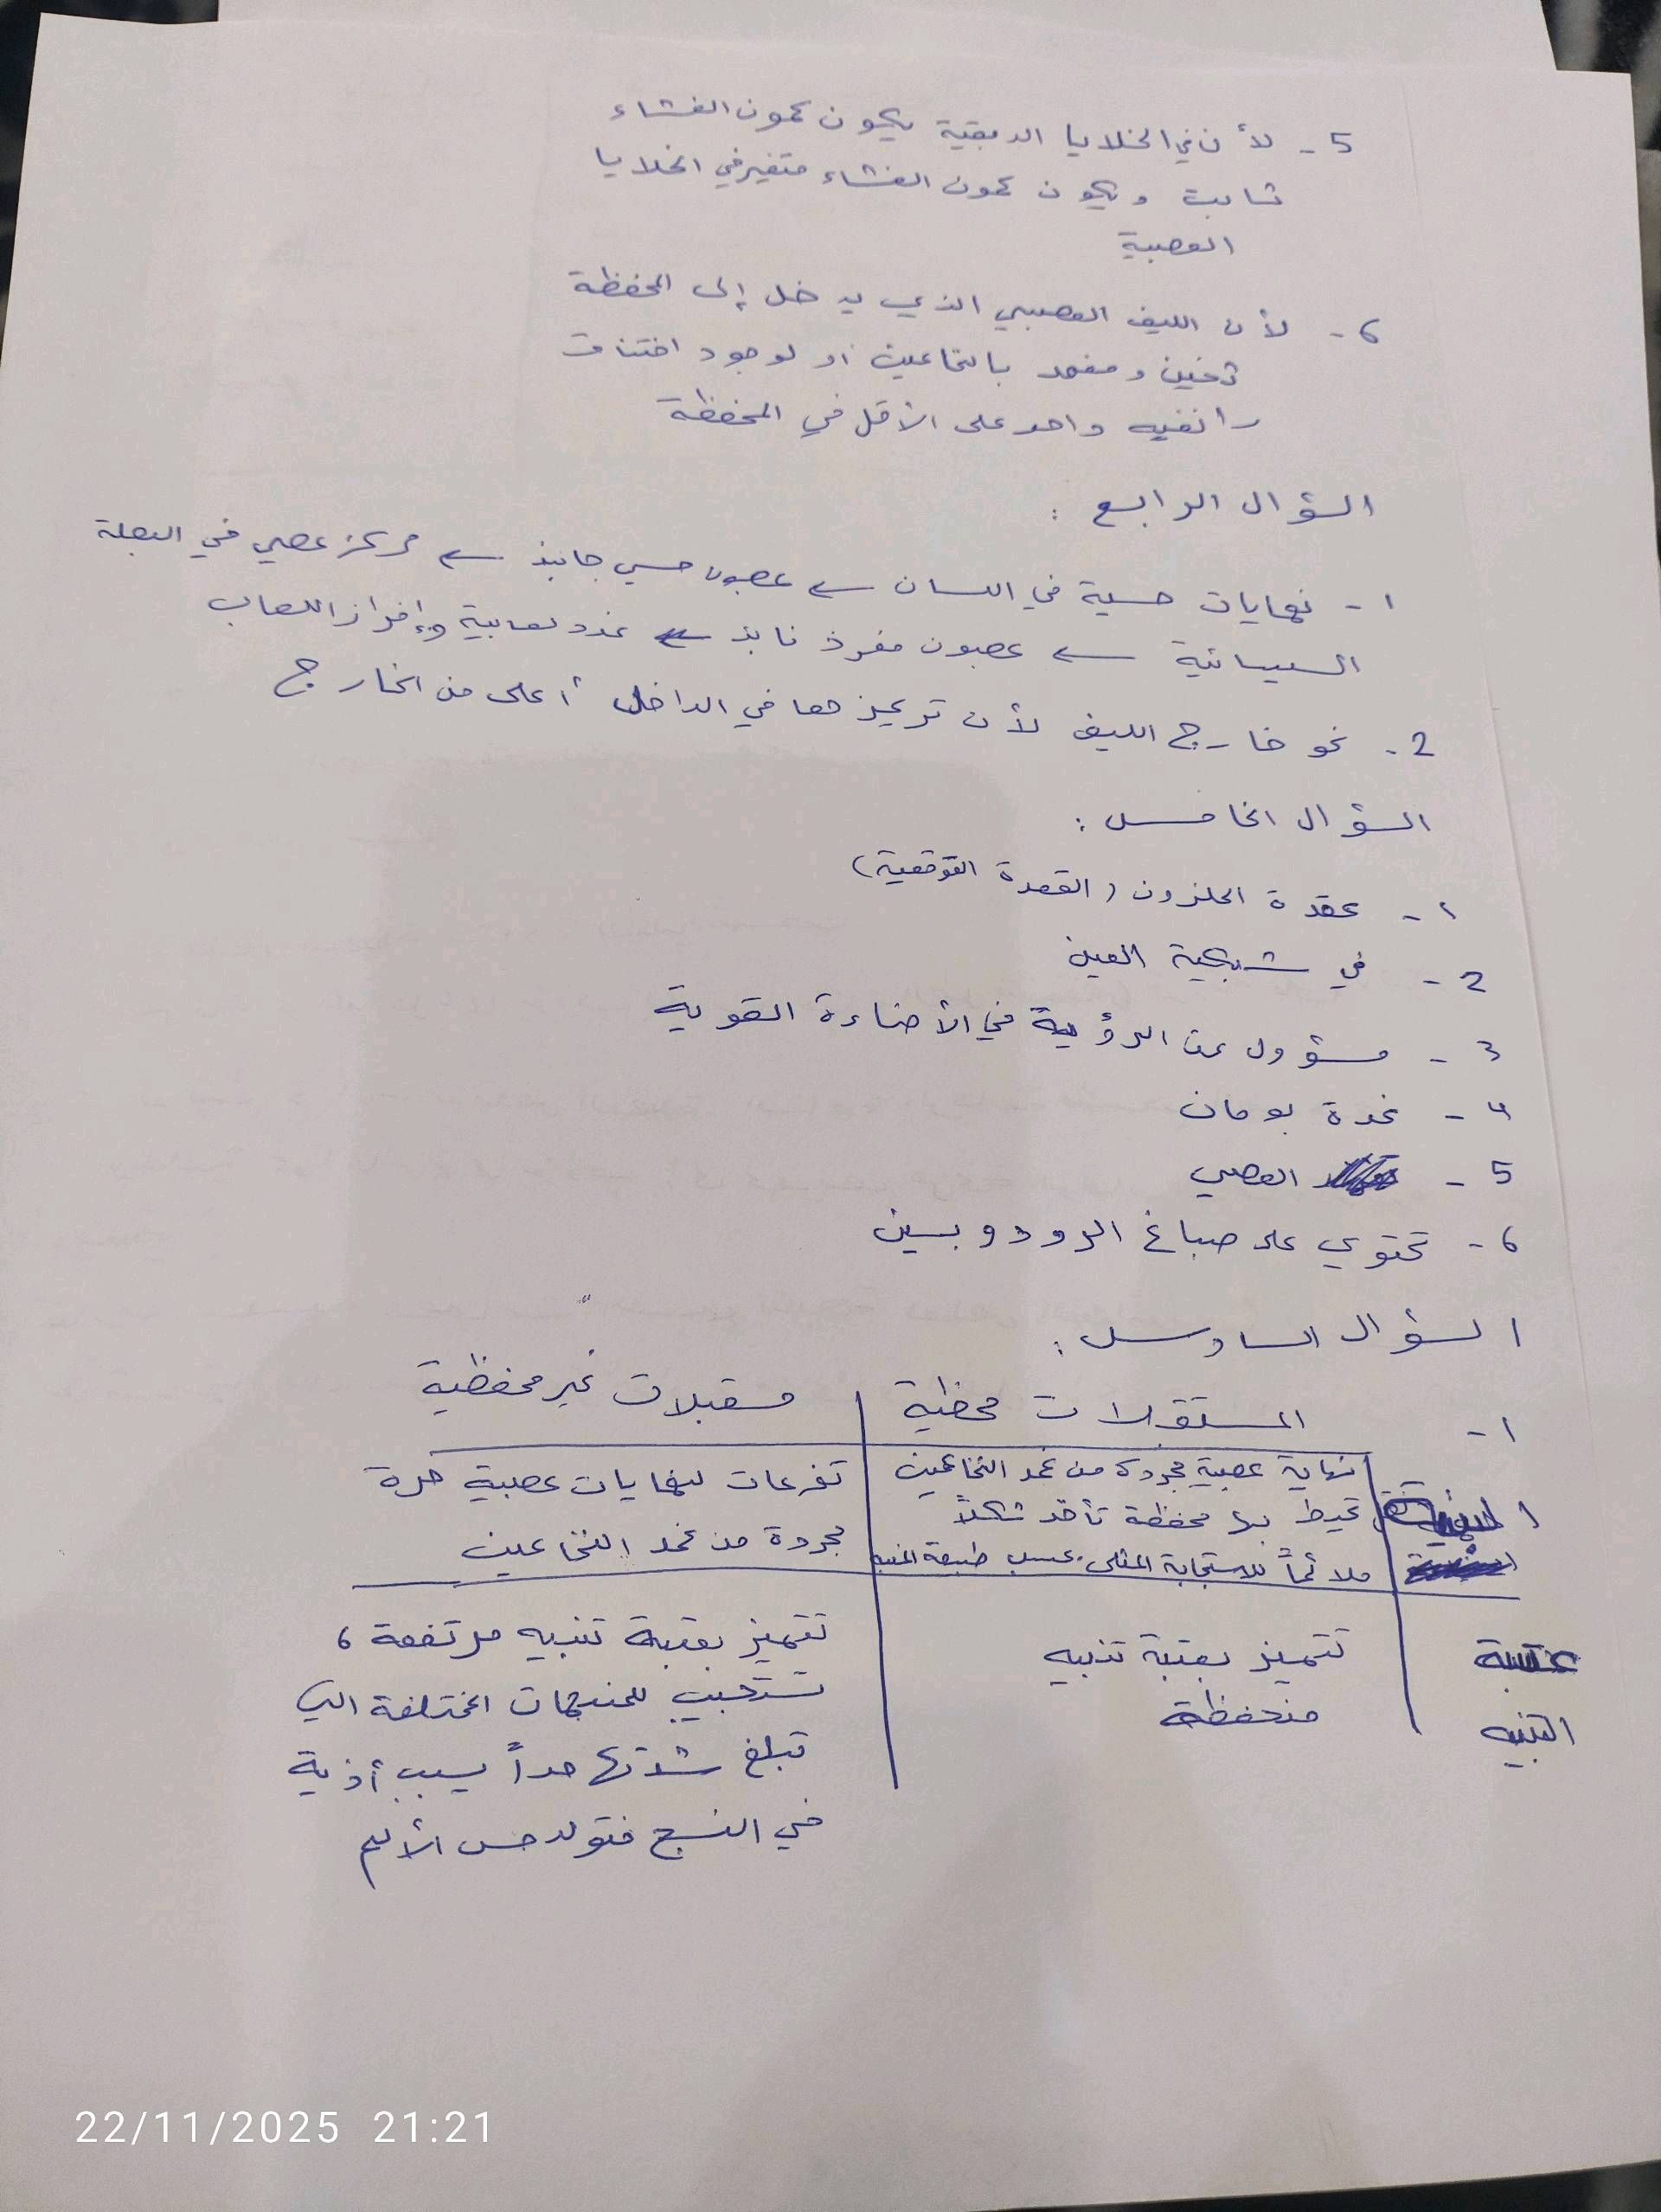 5 - لأن في الخلايا الدبقية يكون كمون الغشاء
ثابت و يكون كمون الغشاء متغير في الخلايا
العصبية
6 - لأن الليف العصبي الذي يدخل إلى المحفظة
ثخين و مغمد بالنخاعين او لوجود اختناق
رانفيه واحد على الأقل في المحفظة
السؤال الرابع :
1 - نهايات حسية في اللسان ← عصبون حسي جابذ ← مركز عصبي في البصلة
السيسائية ← عصبون مفرز نابذ ← غدد لعابية وإفراز اللعاب
2 - نحو خارج الليف لأن تركيزها في الداخل أعلى من الخارج
السؤال الخامس :
1 - عقدة الحلزون (العقدة القوقعية)
2 - في شبكية العين
3 - مسؤول عن الرؤية في الأضاءة القوية
4 - غدة بومان
5 - العصبي
6 - تحتوي على صباغ الرودوبسين
السؤال السادس :
1 - المستقبلات محفظية | مسقبلات غير محفظية
نهاية عصبية مجردة من غمد النخاعين | تفرعات لنهايات عصبية حرة
تحيط بها محفظة تأخذ شكلاً | مجردة من غمد النخاعين
ملائماً للاستجابة المثلى حسب طبيعة المنبه
عتبة | تتميز بعتبة تنبيه | تتميز بعتبة تنبيه مرتفعة ،
التنبيه | منخفظة | تستجيب للمنبهات المختلفة التي
تبلغ شدتها حداً يسبب أذية
في النسج فتولد حس الألم
22/11/2025 21:21